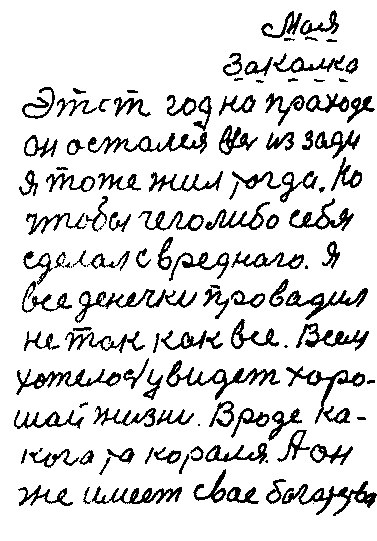 Мая
Закалка
Этст год на праходе
он осталея из зади
я тоже жил тогда. Но
чтобы чего либо себя
сделал с вреднаго. Я
все денечки провадил
не так как все. Всем
хотелось увидет харо-
шай жизни. Вроде ка-
кога та караля. А он
же имеет свае багатство